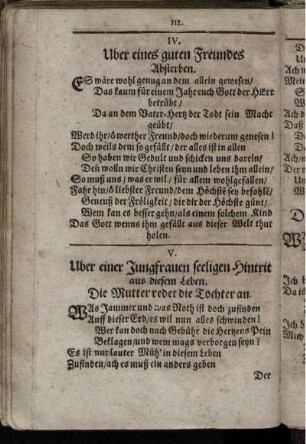 III.
IV.
Uber eines guten Freundes
Absterben.
ES wäre wohl genug an dem allein gewesen/
Das kaum für einem Jahr euch Gott der HErr
betrübt/
Da an dem Vater-Hertz der Todt sein Macht
geübt/
Werd ihr/ ô werther Freund/ doch wiederum genesen!
Doch weils dem so gefällt/ der alles ist in allen
So haben wir Gedult und schicken uns darein/
Deñ wolln wir Christen seyn und leben ihm allein/
So muß uns/ was er wil/ für allem wohlgefallen/
Fahr hin/ ô liebster Freund/ dem Höchstē sey befohlē/
Geneuß der Frőligkeit/ die dir der Höchste günt/
Wem kan es besser gehn/ als einem solchem Kind
Das Gott wenns ihm gefällt aus dieser Welt thut
holen.
V.
Uber einer Jungfrauen seeligen Hintrit
aus diesem Leben.
Die Mutter redet die Tochter an.
WAs Jammer und was Noth ist doch zufinden
Auff dieser Erd/ es wil nun alles schwinden!
Wer kan doch nach Gebühr die Hertzens Pein
Beklagen/ und wem mags verborgen seyn?
Es ist nur lauter Müh' in diesem Leben
Zufinden/ ach es muß ein anders geben
Der